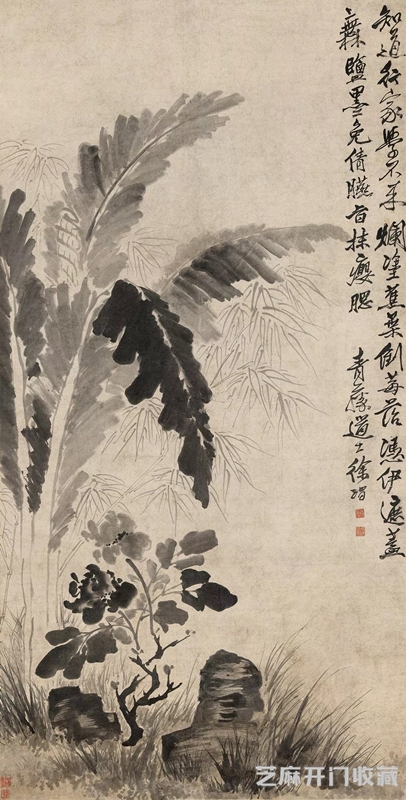 知道行家學不來爛塗蕉葉倒莓苔憑伊遮蓋
無鹽墨免倩臙脂抹瘦腮
青藤道士徐渭
芝麻开门收藏